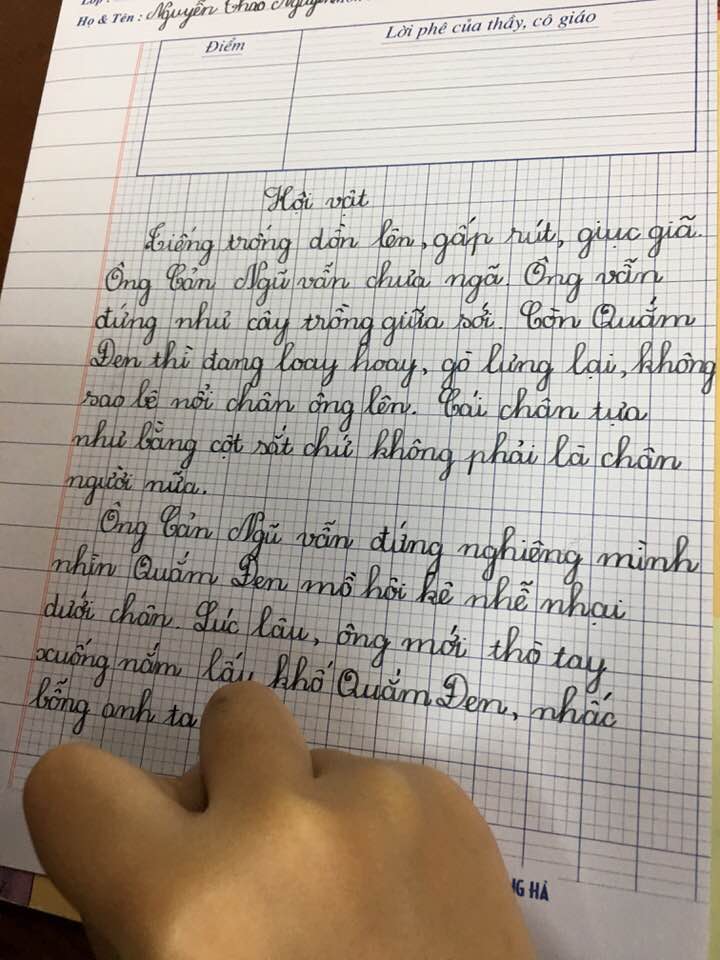 Họ & Tên : Nguyễn Thảo
Điểm
Lời phê của thầy, cô giáo
Hội vật
Tiếng trống dồn lên, gấp rút, giục giã.
Ông Cản Ngũ vẫn chưa ngã. Ông vẫn
đứng như cây trồng giữa sới. Còn Quắm
Đen thì đang loay hoay, gò lưng lại, không
sao bê nổi chân ông lên. Cái chân tựa
như bằng cột sắt chứ không phải là chân
người nữa.
Ông Cản Ngũ vẫn đứng nghiêng mình
nhìn Quắm Đen mồ hôi kê nhễ nhại
dưới chân. Lúc lâu, ông mới thò tay
xuống nắm lấy khố Quắm Đen, nhấc
bổng anh ta
NG HÀ